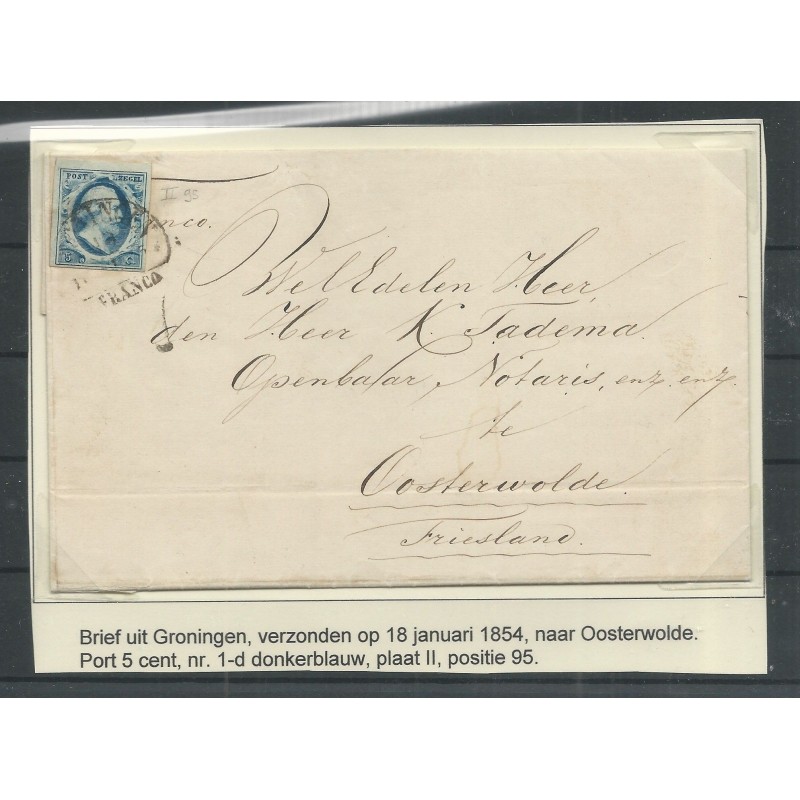 POST ZEGEL
5 C
FRANCO
II 95
nco.
Wel Edelen Heer,
den Heer K. Tadema.
Openbaar Notaris, enz. enz.
te
Oosterwolde.
Friesland.
Brief uit Groningen, verzonden op 18 januari 1854, naar Oosterwolde.
Port 5 cent, nr. 1-d donkerblauw, plaat II, positie 95.